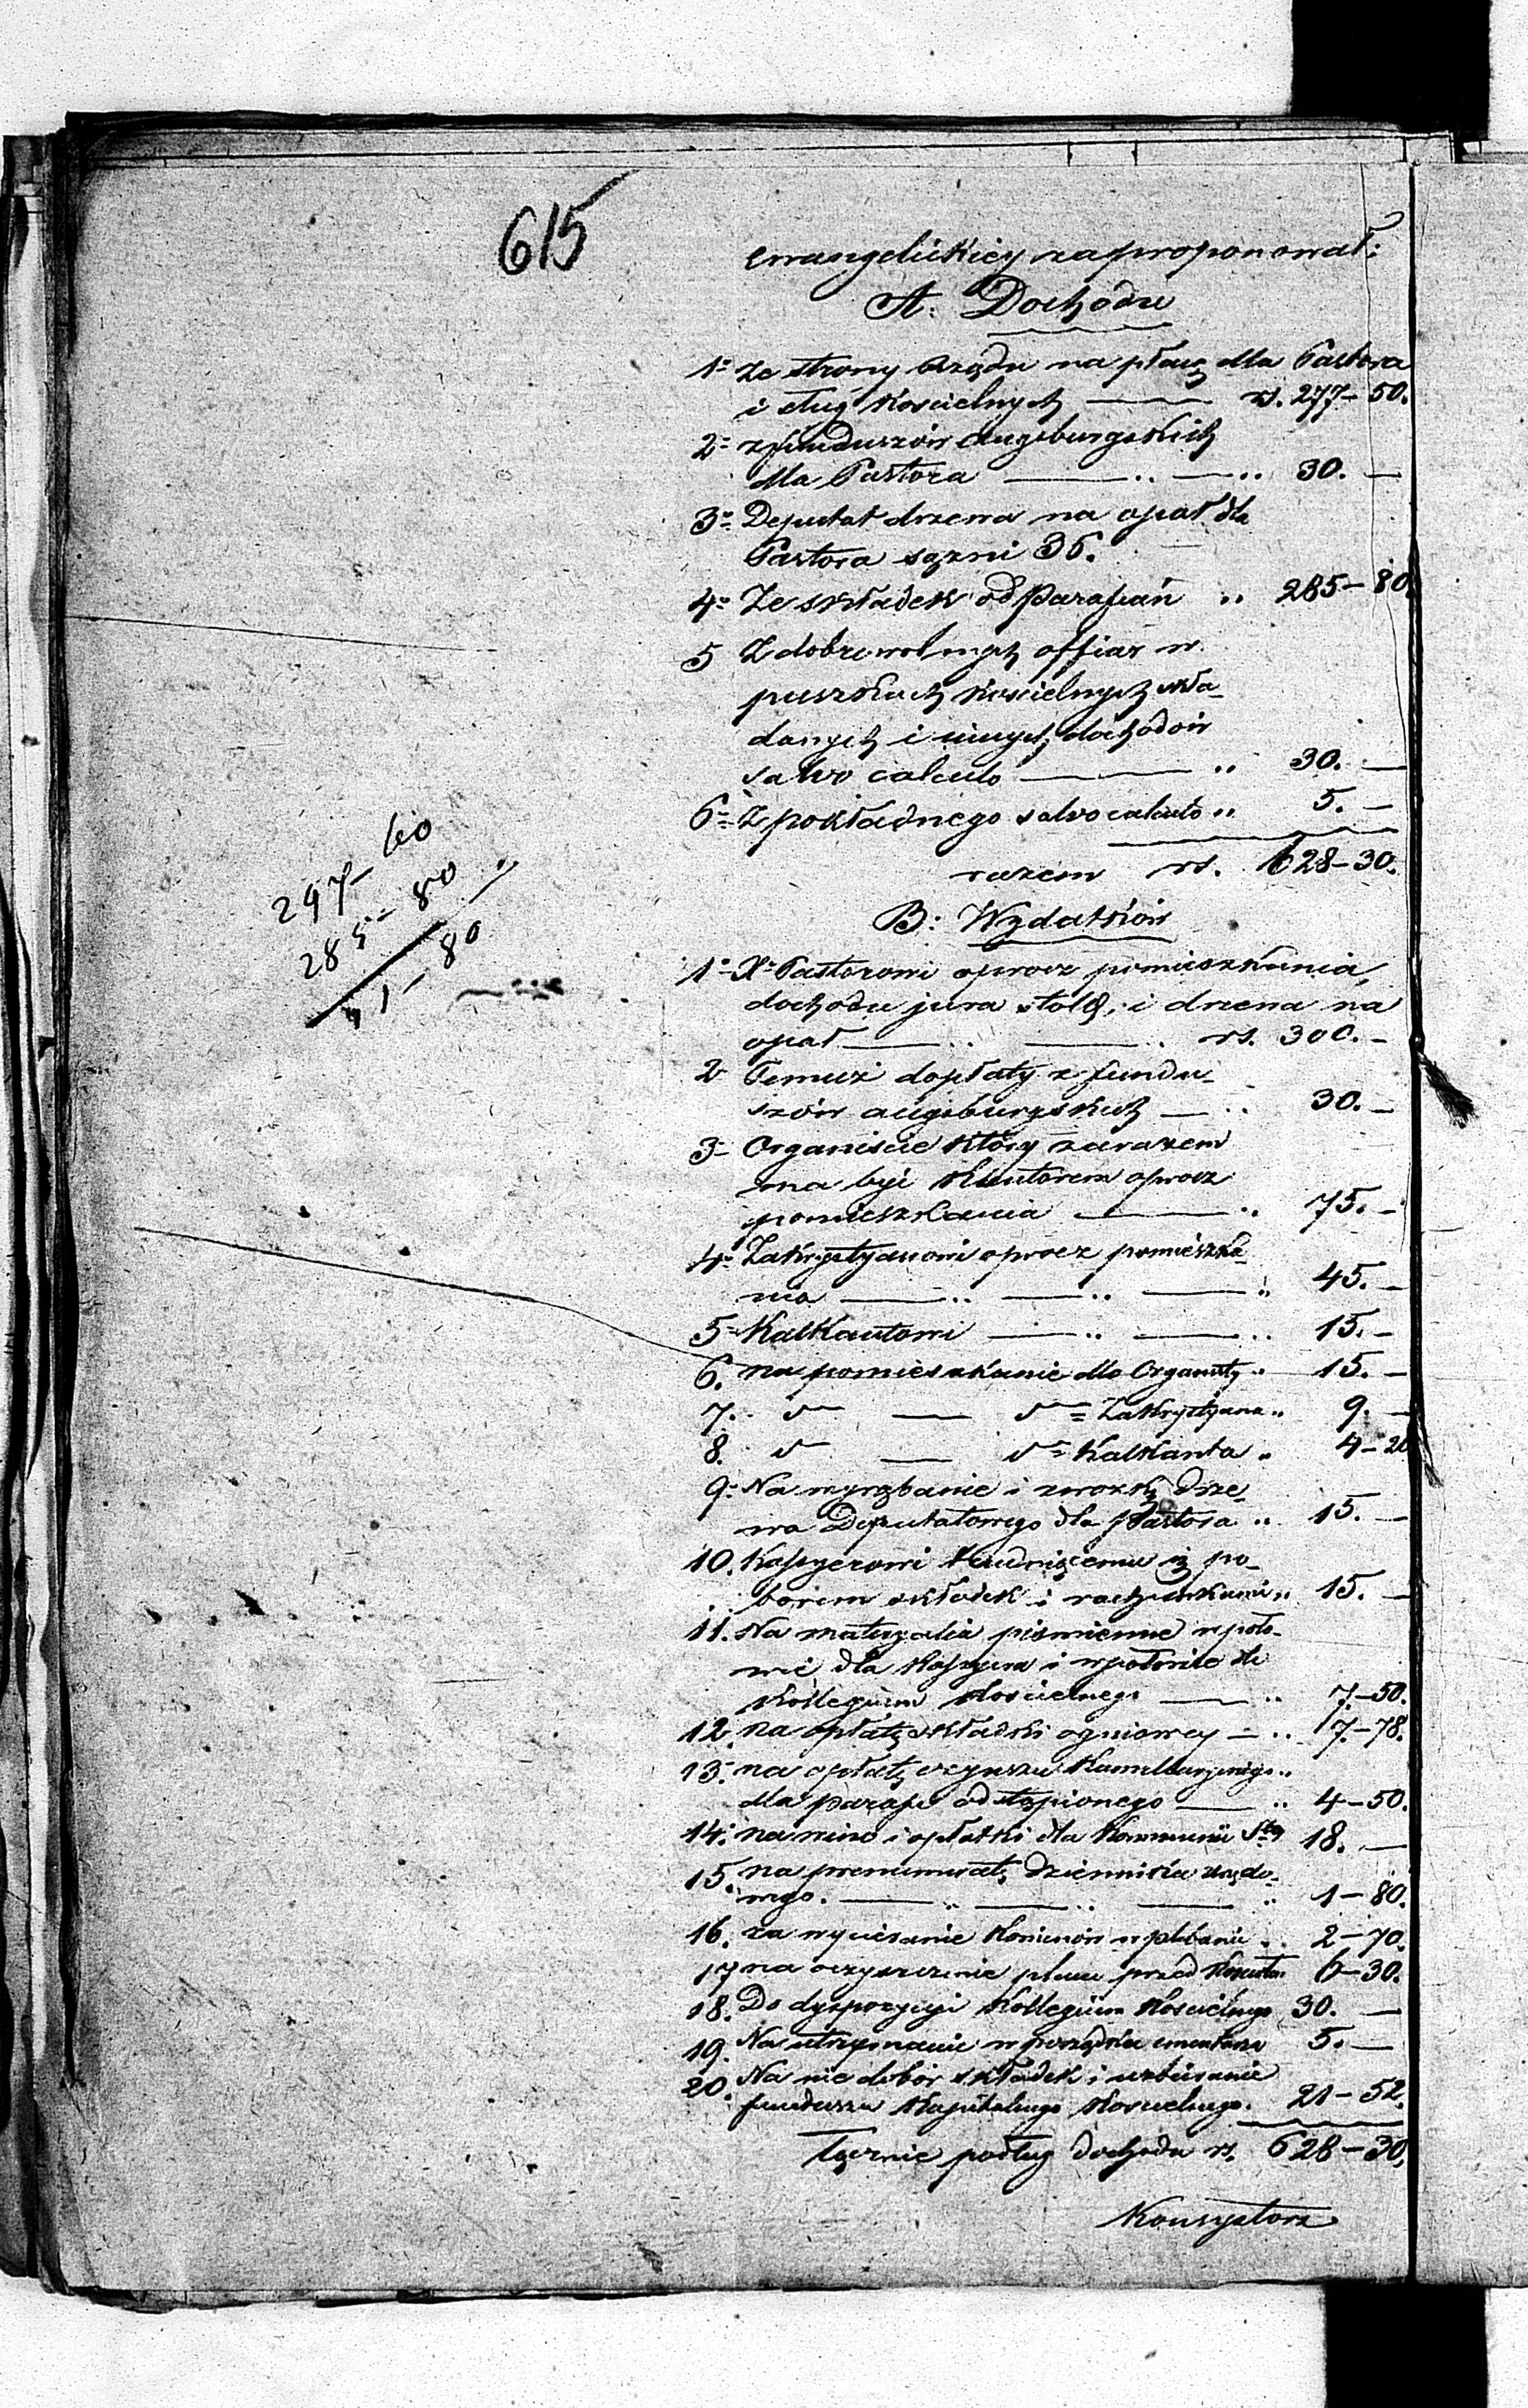 615
ewangelickiey zaproponował:
A. Dochodu
1º ze strony Rządu na płacę dla Pastora
i sług kościelnych rs. 277-50.
2º z funduszów augsburgskich
dla Pastora .. .. 30. —
3º Deputat drzewa na opał dla
Pastora sązni 36.
4º Ze składek od Parafian .. 285-80.
5 Z dobrowolnych offiar w
puszkach kościelnych skła-
danych i innych dochodów
salvo calculo .. 30. —
6º Z pokładnego salvo calculo .. 5. —
razem rs. 628-30.
247-60
285-80
41-80
B: Wydatków
1º X. Pastorowi oprocz pomieszkania,
dochodu jura stolæ, i drzewa na
opał .. .. rs. 300. —
2 Temuż dopłaty z fundu-
szów augsburgskich .. 30. —
3º Organiście który zarazem
ma być Kantorem oprocz
pomieszkania .. 75. —
4º Zakrystyanowi oprocz pomieszka-
nia .. .. .. 45. —
5º Kalkantowi .. .. 15. —
6. na pomieszkanie dla Organisty .. 15. —
7. d° — d° Zakrystyana .. 9. —
8. d° — d° Kalkanta .. 4-20
9. Na wyrąbanie i zwozkę drze-
wa Deputatowego dla Pastora .. 15. —
10. Kassyerowi trudniącemu się po-
borem składek i rachunkami .. 15. —
11. Na materyalia piśmienne w poło-
wie dla Kassyera i w połowie dla
Kollegium Kościelnego .. 7-50.
12. na opłatę składki ogniowey .. 7-78.
13. na opłatę czynszu Kamellaryinego ..
dla parafii odstąpionego .. 4-50.
14. na wino i opłatki dla Kommunii Stey 18. —
15. na prenumeratę Dziennika urzędo-
wego. .. .. .. 1-80.
16. za wycieranie Kominów w plebanii .. 2-70.
17 na oczyszczenie placu przed Kościołem 6-30.
18. Do dyspozycyi Kollegium Kościelnego 30. —
19. Na utrzymanie w porządku cmentarza 5. —
20. Na nie dobór składek i uzbieranie
funduszu Kapitalnego Kościelnego. 21-52.
Łącznie podług dochodu rs. 628-30.
Konsystorz